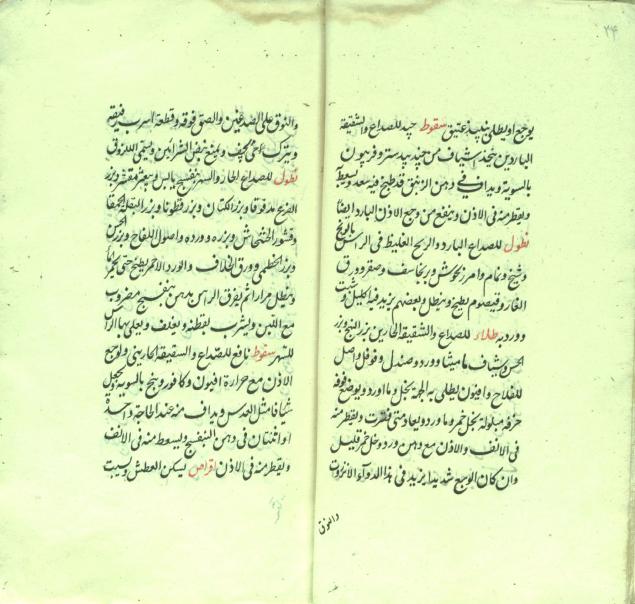 ٣٤
يوجع او يطلى بنبيذ عتيق سقوط جيد للصداع والشقيقة
الباردين يتخذ اشياف من جند بيدستر وفربيون
بالسوية ويداف في دهن الزنبق قد طبخ فيه سعد
ويقطر منه فى الاذن وينفع من وجع الاذن البارد ايضا
نطول للصداع البارد والريح الغليظ فى الراس
وشيح ونمام ومرزنجوش وبرنجاسف وصعتر وورق
الغار وقيصوم يطبخ وينطل وبعضهم يزيد فيه اكليل وشبت
وورد به طلاء للصداع والشقيقة الحارين بزر البنج وبزر
الخس وشياف ماميثا وورد وصندل وفوفل واصل
اللفاح وافيون يطلى به الجبهة بخل وماء ورد ويوضع فوقه
خرقة مبلولة بخل خمر وماء ورد يعاد متى فترت ويقطر منه
فى الانف والاذن مع دهن ورد وخل خمر قليل
وان كان الوجع شديدا يزيد فى هذا الدواء الانزروت
والنوق
والنوق على الصدغين والصق فوقه وقطعة اسرب رقيقة
ويترك حتى يجف ويمنع نبض الشرائين ويسمى اللزوق
نطول للصداع الحار والسهر بنفسج يابس وشعير مقشر وبزر
القرع مدقوقا وبزر الكتان وبزر قطونا وبزر البقلة الحمقا
وقشور الخشخاش وبزره وورده واصول اللفاح وبزر الخس
وبزر الخطمى وورق الخلاف والورد الاحمر يطبخ حتى
وينطل مرارا ثم يغرق الراس بدهن بنفسج مضروب
مع اللبن ويشرب لقطنه ويغلف ويعلى بها الراس
للسهر سقوط نافع للصداع والشقيقة الحارين ولوجع
الاذن مع حرارة افيون وكافور وبنج بالسوية ويجعل
شيافا مثل العدس ويداف منه عند الحاجة واحدة
او اثنتان فى دهن البنفسج ويسعط منه فى الانف
ويقطر منه فى الاذن اقراص ليسكن العطش